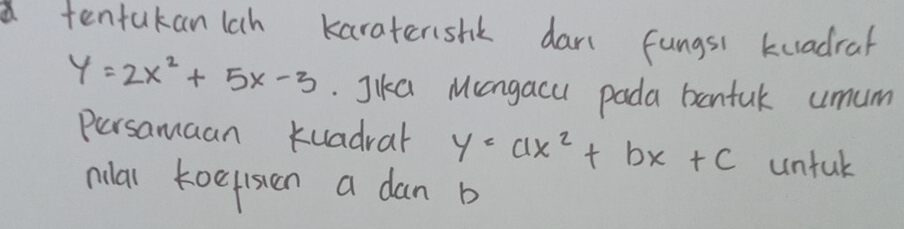 a tentukan lah karateristik dari fungsi kuadrat
y = 2x² + 5x - 3. Jika Mengacu pada bentuk umum
Persamaan kuadrat y = ax² + bx + c untuk
nilai koefisien a dan b